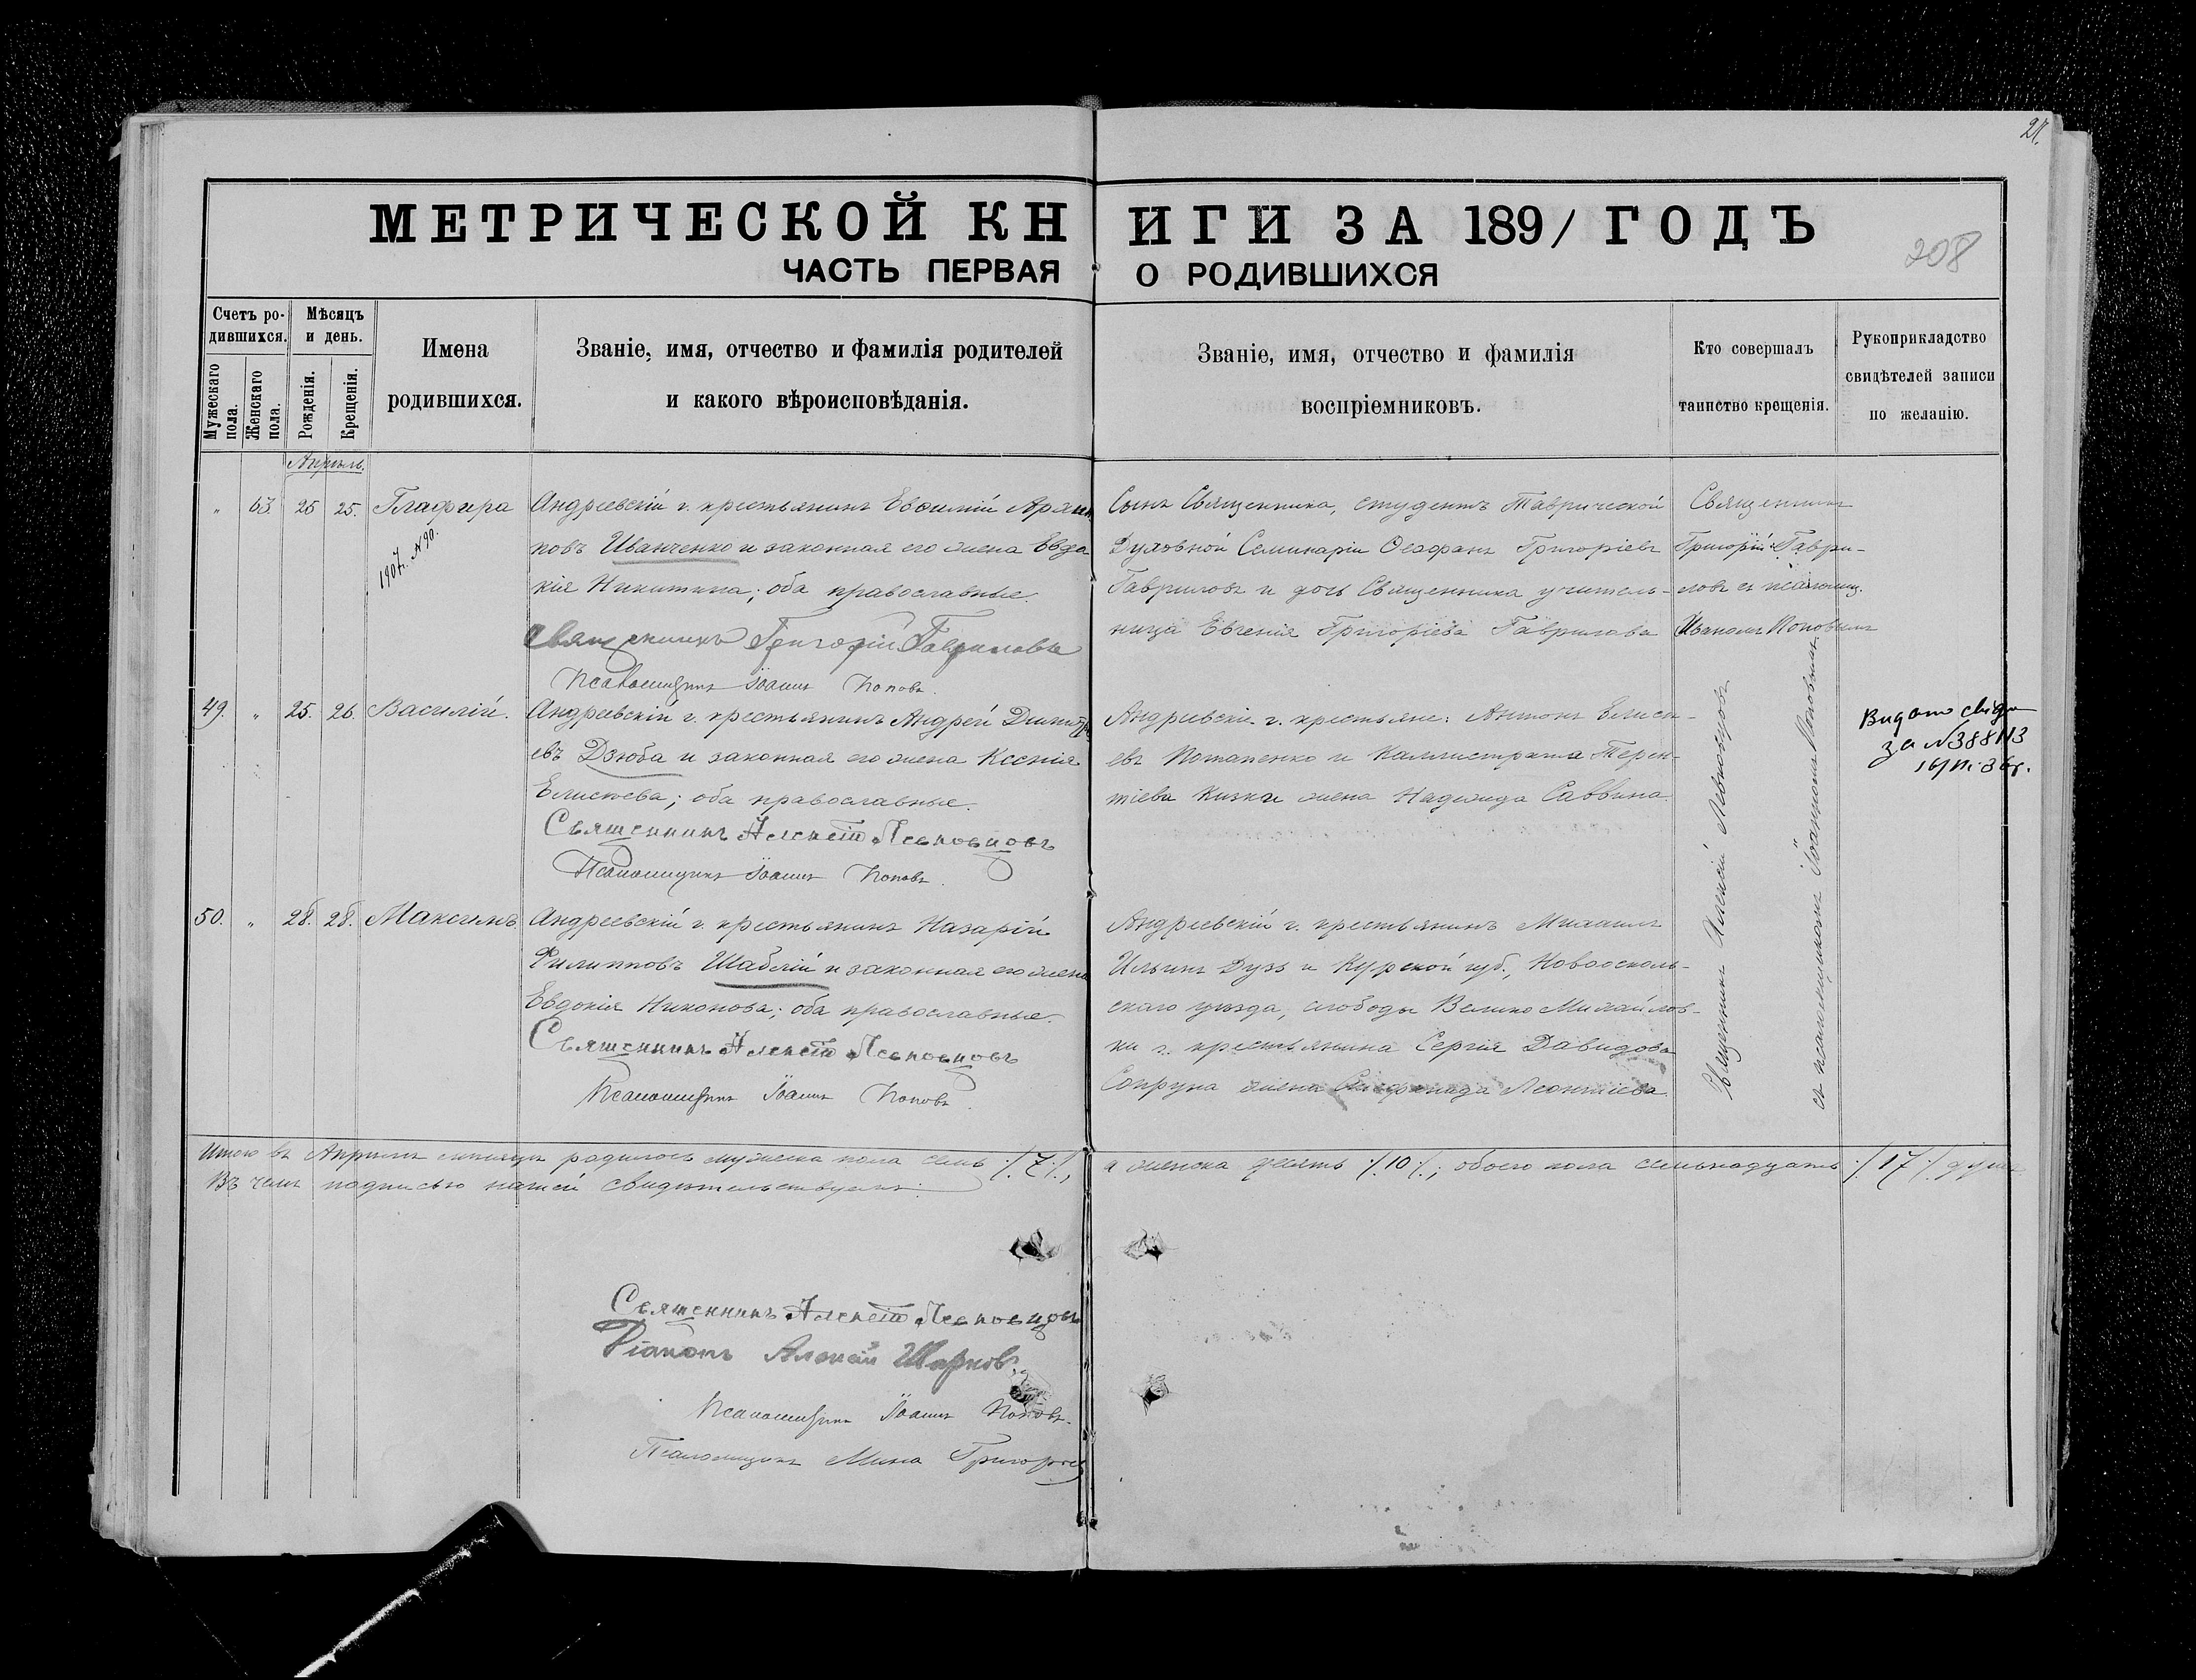 21.
МЕТРИЧЕСКОЙ КНИГИ ЗА 1891 ГОДЪ
208
ЧАСТЬ ПЕРВАЯ О РОДИВШИХСЯ
Счетъ родившихся.
Мужескаго пола.
Женскаго пола.
Мѣсяцъ и день.
Рожденія.
Крещенія.
Имена
родившихся.
Званіе, имя, отчество и фамилія родителей
и какого вѣроисповѣданія.
Званіе, имя, отчество и фамилія
воспріемниковъ.
Кто совершалъ
таинство крещенія.
Рукоприкладство
свидѣтелей записи
по желанію.
Апрѣль.
" 63. 25 25. Глафира
1907. N 90.
Андреевскій г. крестьянинъ Евѳимій
новъ Иванченко и законная его жена Евдо
кія Никитина; оба православные.
Священникъ Григорій Гавриловъ
Псаломщикъ Іоаннъ Поповъ.
Сынъ Священника, студентъ Таврической
Духовной Семинаріи Ѳеофанъ Григоріевъ
Гавриловъ и дочь Священника учитель-
ница Евгенія Григоріева Гаврилова
Священникъ
Григорій Гаври-
ловъ съ псаломщ.
Иваномъ Поповымъ
49. " 25. 26. Василій.
Андреевскій г. крестьянинъ Андрей Димитрі
евъ Дзюба и законная его жена Ксенія
Елисѣева; оба православные.
Священникъ Алексій Левковцовъ
Псаломщикъ Іоаннъ Поповъ.
Андреевскіе г. крестьяне: Антонъ Елисѣ-
евъ Потапенко и Каллистрата Терен-
тіева Кизки жена Надежда Саввина.
Видано свідо
за N 388113
16/VI 36г.
50. " 28. 28. Максимъ.
Андреевскій г. крестьянинъ Назарій
Филипповъ Шаблій и законная его жена
Евдокія Никонова; оба православные.
Священникъ Алексій Левковцовъ
Псаломщикъ Іоаннъ Поповъ.
Андреевскій г. крестьянинъ Михаилъ
Ильинъ Дузь и Курской губ., Новоосколь-
скаго уѣзда, слободы Велико Михайлов-
ки г. крестьянина Сергія Давидова
Сопруна жена Леонтіева.
Священникъ Алексій Левковцовъ
съ псаломщикомъ Іоанномъ Поповымъ
Итого въ Апрѣлѣ мѣсяцѣ родилось мужеска пола семь ·/. 7 ·/., а женска десять ·/. 10 ·/.; обоего пола семьнадцать ·/. 17 ·/. душъ
Въ чемъ подписью нашей свидѣтельствуемъ:
Священникъ Алексій Левковцовъ
Діаконъ Алексій Шарков
Псаломщикъ Іоаннъ Поповъ.
Псаломщикъ Мина